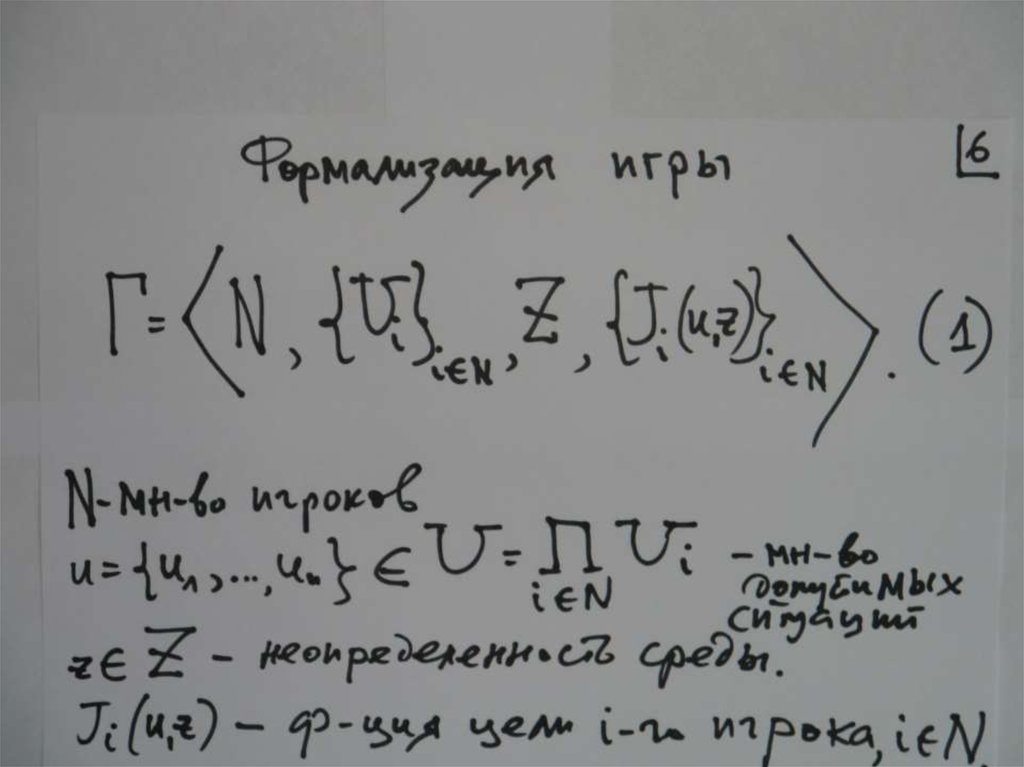 Формализация игры
6
Γ = ⟨N, {U_i}_{i∈N}, Z, {J_i(u,z)}_{i∈N}⟩. (1)
N - мн-во игроков
u = {u_1, ..., u_n} ∈ U = ∏_{i∈N} U_i - мн-во
допустимых
ситуаций
z ∈ Z - неопределенность среды.
J_i(u,z) - ф-ция цели i-го игрока, i∈N.